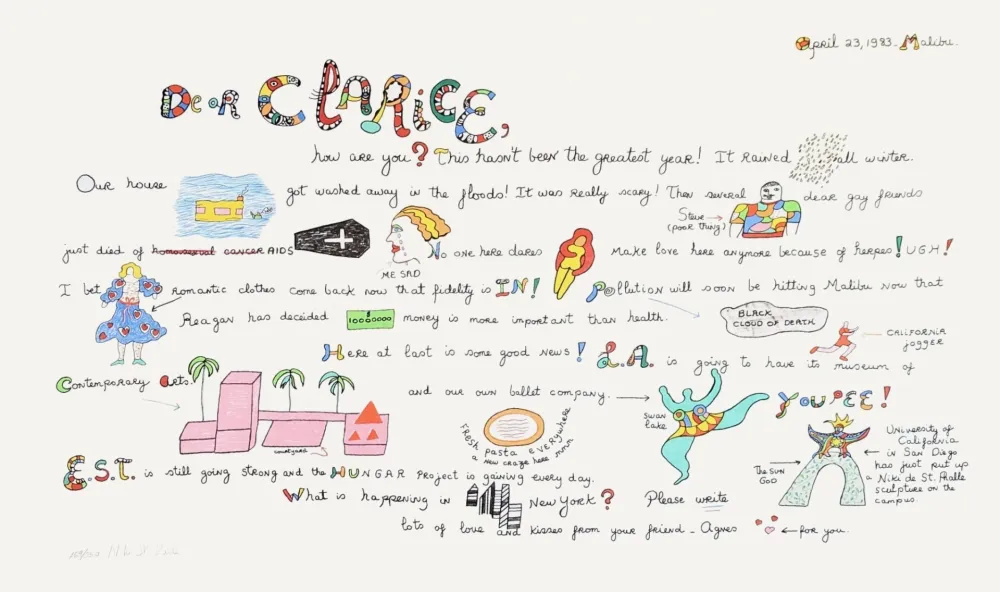 April 23, 1983. Malibu.
Dear CLARICE,
how are you? This hasn't been the greatest year! It rained all winter.
Our house got washed away in the floods! It was really scary! Then several dear gay friends
Steve →
(poor thing)
just died of homosexual cancer AIDS No one here dares Make love here anymore because of herpes! UGH!
ME SAD
I bet romantic clothes come back now that fidelity is IN! Pollution will soon be hitting Malibu now that
Reagan has decided 10000000 money is more important than health.
BLACK
CLOUD OF DEATH
CALIFORNIA
jOGGER
Here at last is some good news! L.A. is going to have its museum of
Contemporary Arts. and our own ballet company. → YOUPEE!
courtyard
FRESH pasta EVERYWHERE
a NEW craze here
swan
lake
The SUN
GOD
University of
California
in San Diego
has just put up
a Niki de St. Phalle
sculpture on the
campus.
E.S.T. is still going strong and the HUNGAR Project is gaining every day.
What is happening in New York? Please write
lots of love and kisses from your friend - Agnes ← for you.